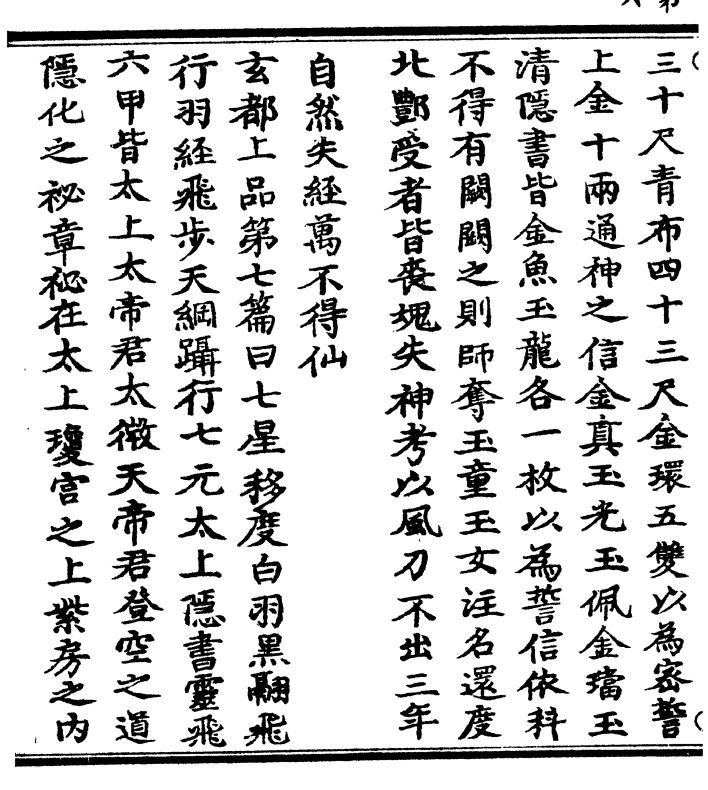 三十尺青布四十三尺金環五雙以為密誓
上金十兩通神之信金真玉光玉佩金璫玉
清隱書皆金魚玉龍各一枚以為誓信依科
不得有闕闕之則師奪玉童玉女注名還度
北酆受者皆喪魂失神考以風刀不出三年
自然失經萬不得仙
玄都上品第七篇曰七星移度白羽黑翮飛
行羽經飛步天綱躡行七元太上隱書靈飛
六甲皆太上太帝君太微天帝君登空之道
隱化之祕章祕在太上瓊宫之上紫房之内